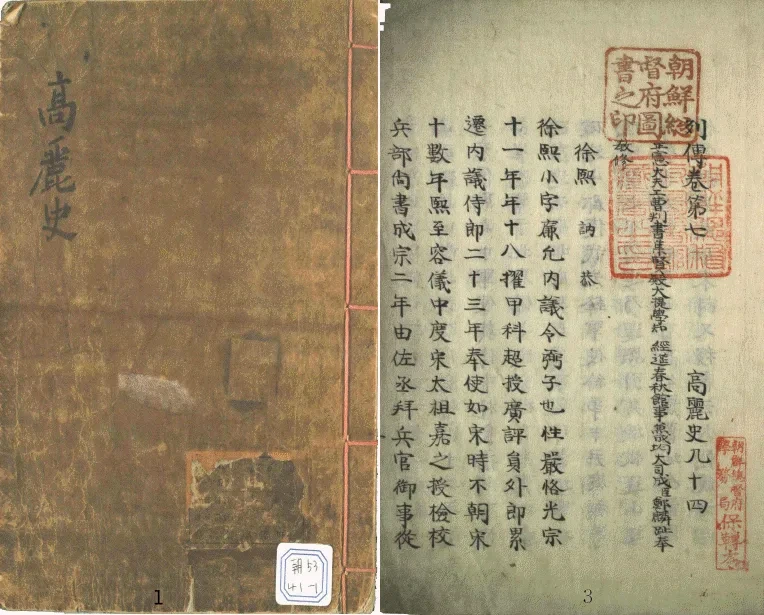 高麗史
朝53
41-1
1
朝鮮總督府圖書之印
列傳卷第七 高麗史九十四
正憲大夫工曹判書集賢殿大提學知 經筵春秋館事兼成均大司成臣鄭麟趾奉
教修
徐熙 訥 恭
徐熙小字廉允内議令弼子也性嚴恪光宗
十一年年十八擢甲科超授廣評員外郎累
遷内議侍郎二十三年奉使如宋時不朝宋
十數年熙至容儀中度宋太祖嘉之授檢校
兵部尚書成宗二年由佐丞拜兵官御事從
朝鮮總督府
3